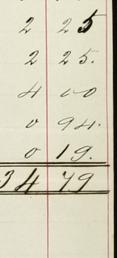 2 25
2 25.
4 00
0 94.
0 19.
34 79